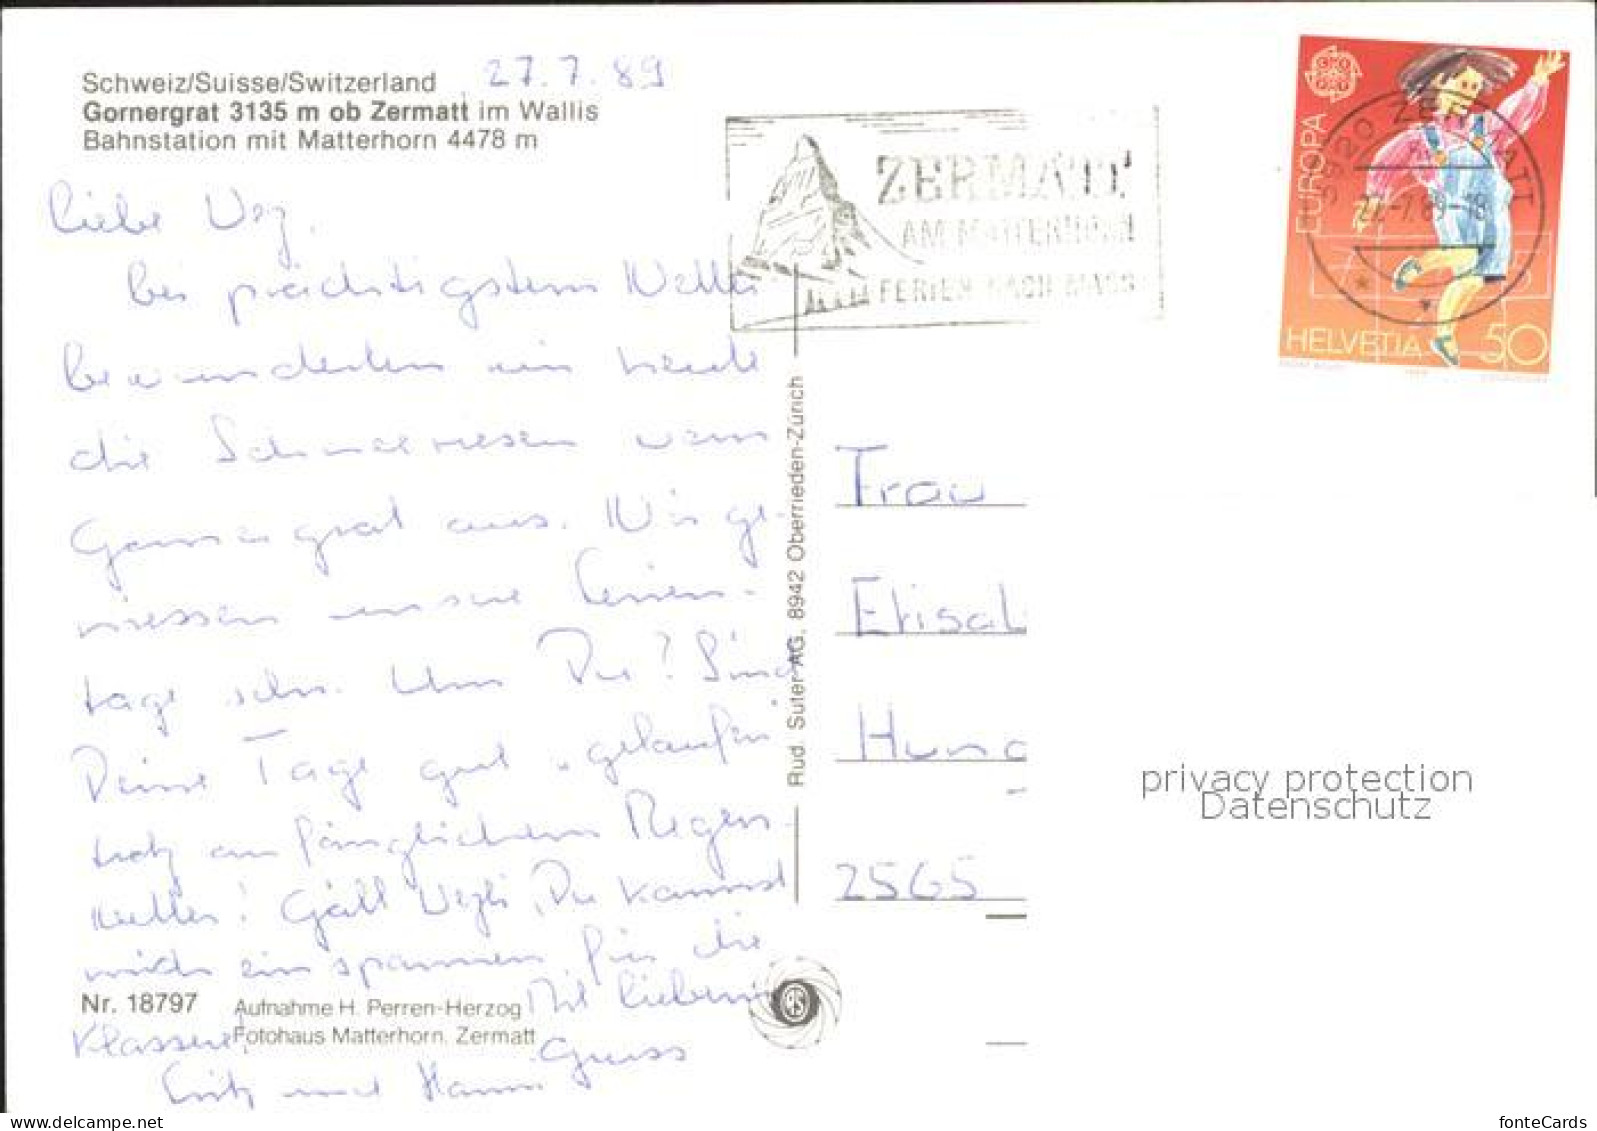 Schweiz/Suisse/Switzerland
Gornergrat 3135 m ob Zermatt im Wallis
Bahnstation mit Matterhorn 4478 m
27.7.89
Liebe Vez,
bei prächtigstem Wetter
bewunderten wir heute
die Schneeriesen vom
Gornergrat aus. Wir ge-
niessen unsere Ferien-
tage sehr. Und Du? Sind
Deine Tage gut "gelaufen"
trotz anfänglichem Regen-
wetter? Gäll Vezli, Du kannst
mich einspannen für die
Klassene!
Mit lieben
Gruss
Fritz und Hanni
Nr. 18797
Aufnahme H. Perren-Herzog
Fotohaus Matterhorn, Zermatt
Rud. Suter AG, 8942 Oberrieden-Zürich
ZERMATT
AM MATTERHORN
FERIEN NACH MASS
3920 ZERMATT
27.-7.89-18
EUROPA
CEPT
HELVETIA 50
Frau
Elisa
Hun
2565
privacy protection
Datenschutz
fonteCards